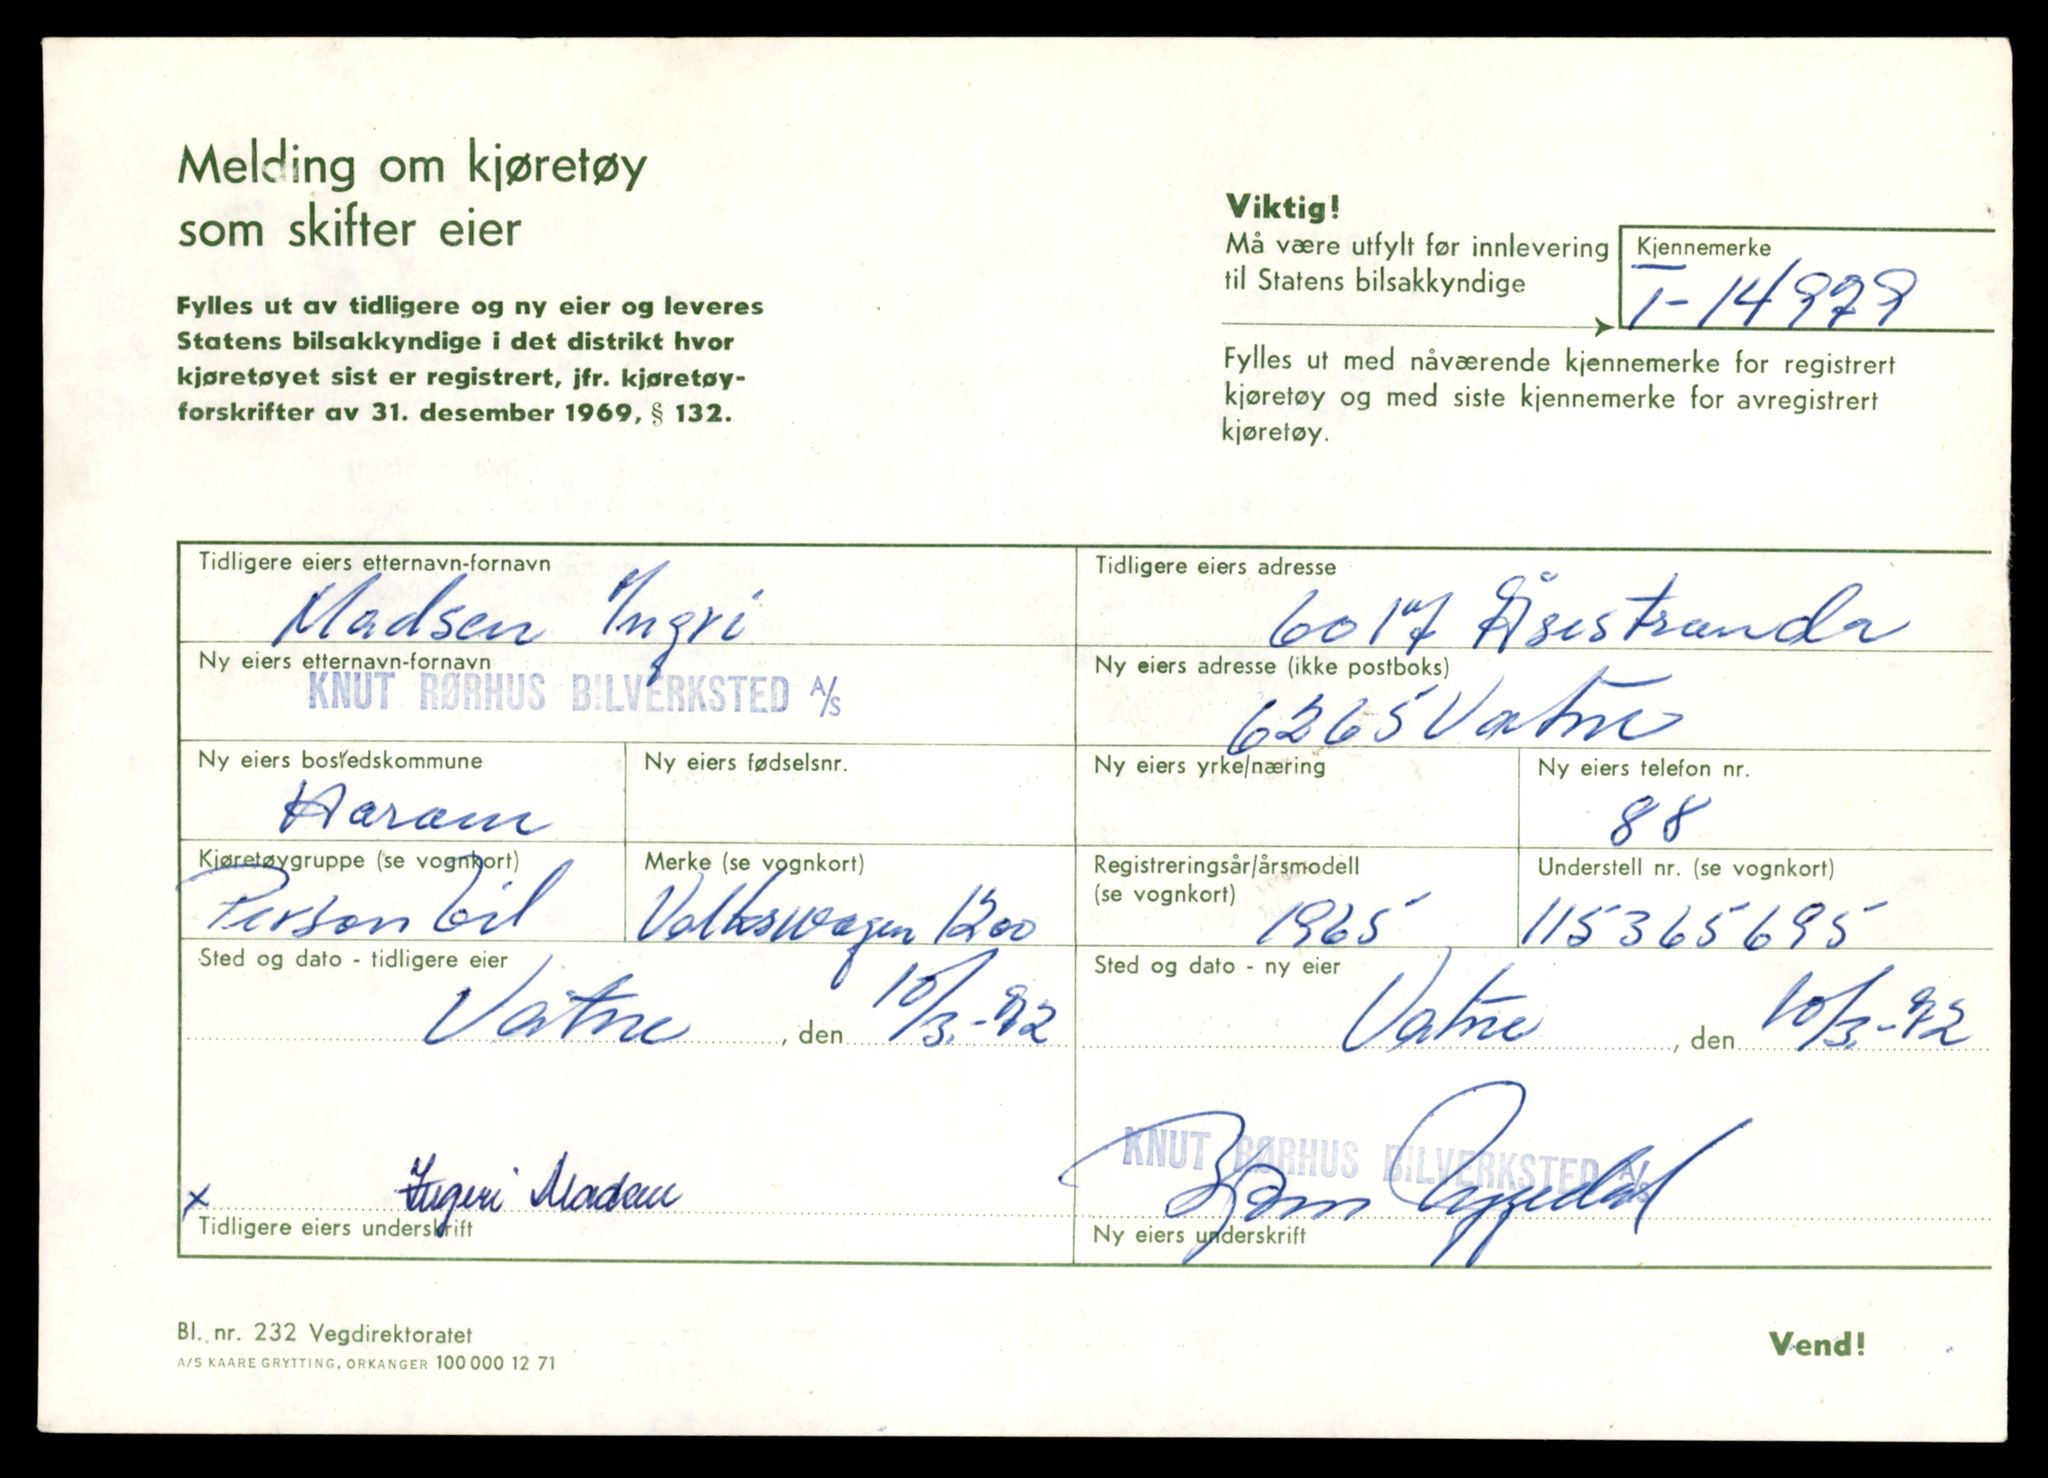 Melding om kjøretøy
som skifter eier
Fylles ut av tidligere og ny eier og leveres
Statens bilsakkyndige i det distrikt hvor
kjøretøyet sist er registrert, jfr. kjøretøy-
forskrifter av 31. desember 1969, § 132.
Viktig!
Må være utfylt før innlevering
til Statens bilsakkyndige
Kjennemerke
T-14979
Fylles ut med nåværende kjennemerke for registrert
kjøretøy og med siste kjennemerke for avregistrert
kjøretøy.
Tidligere eiers etternavn-fornavn
Madsen Yngvi
Tidligere eiers adresse
6017 Åsestranda
Ny eiers etternavn-fornavn
KNUT RØRHUS BILVERKSTED A/S
Ny eiers adresse (ikke postboks)
6265 Vatne
Ny eiers bostedskommune
Haram
Ny eiers fødselsnr.
Ny eiers yrke/næring
Ny eiers telefon nr.
88
Kjøretøygruppe (se vognkort)
Personbil
Merke (se vognkort)
Volkswagen 1200
Registreringsår/årsmodell
(se vognkort)
1965
Understell nr. (se vognkort)
115365695
Sted og dato - tidligere eier
Vatne, den 10/3.-72
Sted og dato - ny eier
Vatne, den 10/3.-72
x Ingeri Madsen
Tidligere eiers underskrift
KNUT RØRHUS BILVERKSTED A/S
Bjørn
Ny eiers underskrift
Bl. nr. 232 Vegdirektoratet
A/S KAARE GRYTTING, ORKANGER 100 000 12 71
Vend!